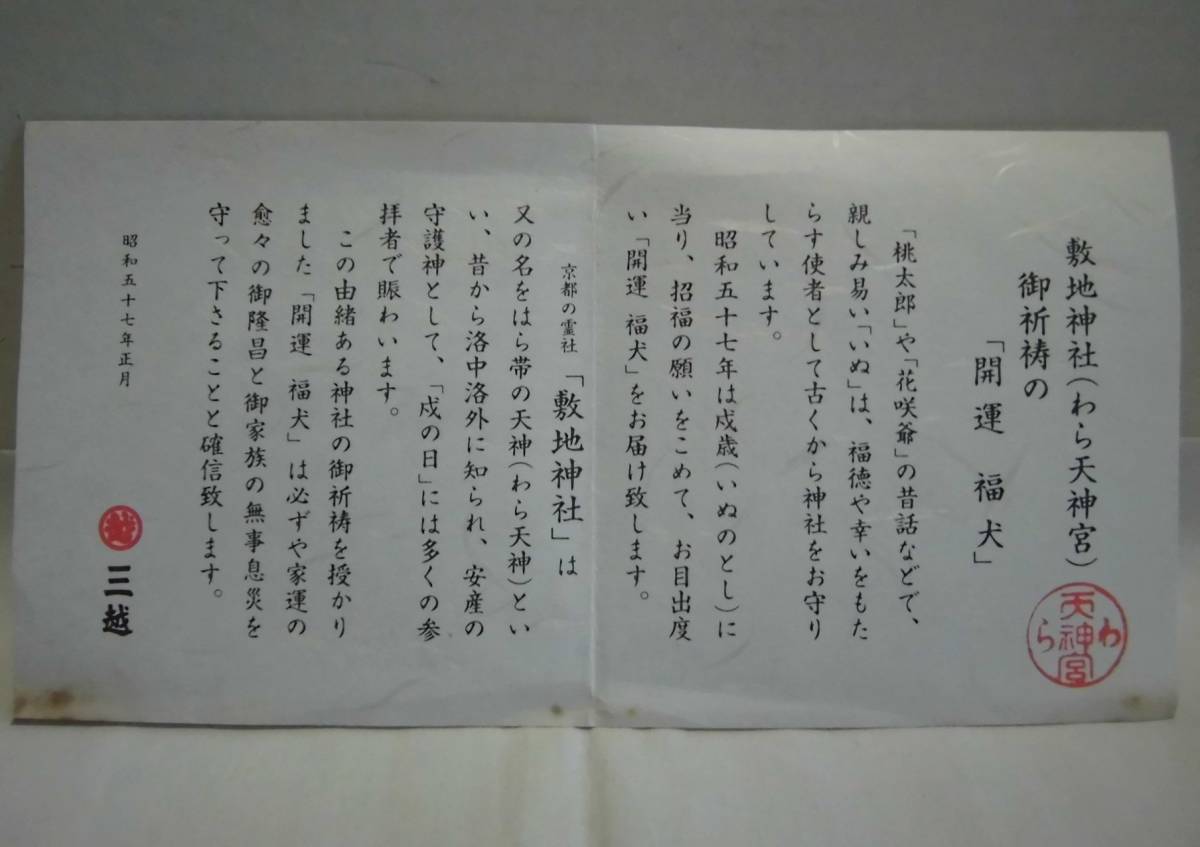 敷地神社(わら天神宮)
御祈祷の
「開運 福犬」
わら天神宮
「桃太郎」や「花咲爺」の昔話などで、
親しみ易い「いぬ」は、福徳や幸いをもた
らす使者として古くから神社をお守り
しています。
昭和五十七年は戌歳(いぬのとし)に
当り、招福の願いをこめて、お目出度
い「開運 福犬」をお届け致します。
京都の霊社「敷地神社」は
又の名をはら帯の天神(わら天神)とい
い、昔から洛中洛外に知られ、安産の
守護神として、「戌の日」には多くの参
拝者で賑わいます。
この由緒ある神社の御祈祷を授かり
ました「開運 福犬」は必ずや家運の
愈々の御隆昌と御家族の無事息災を
守って下さることと確信致します。
昭和五十七年正月
越 三越